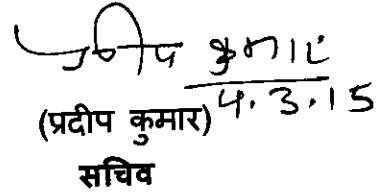 प्रदीप कुमार
4.3.15
(प्रदीप कुमार)
सचिव